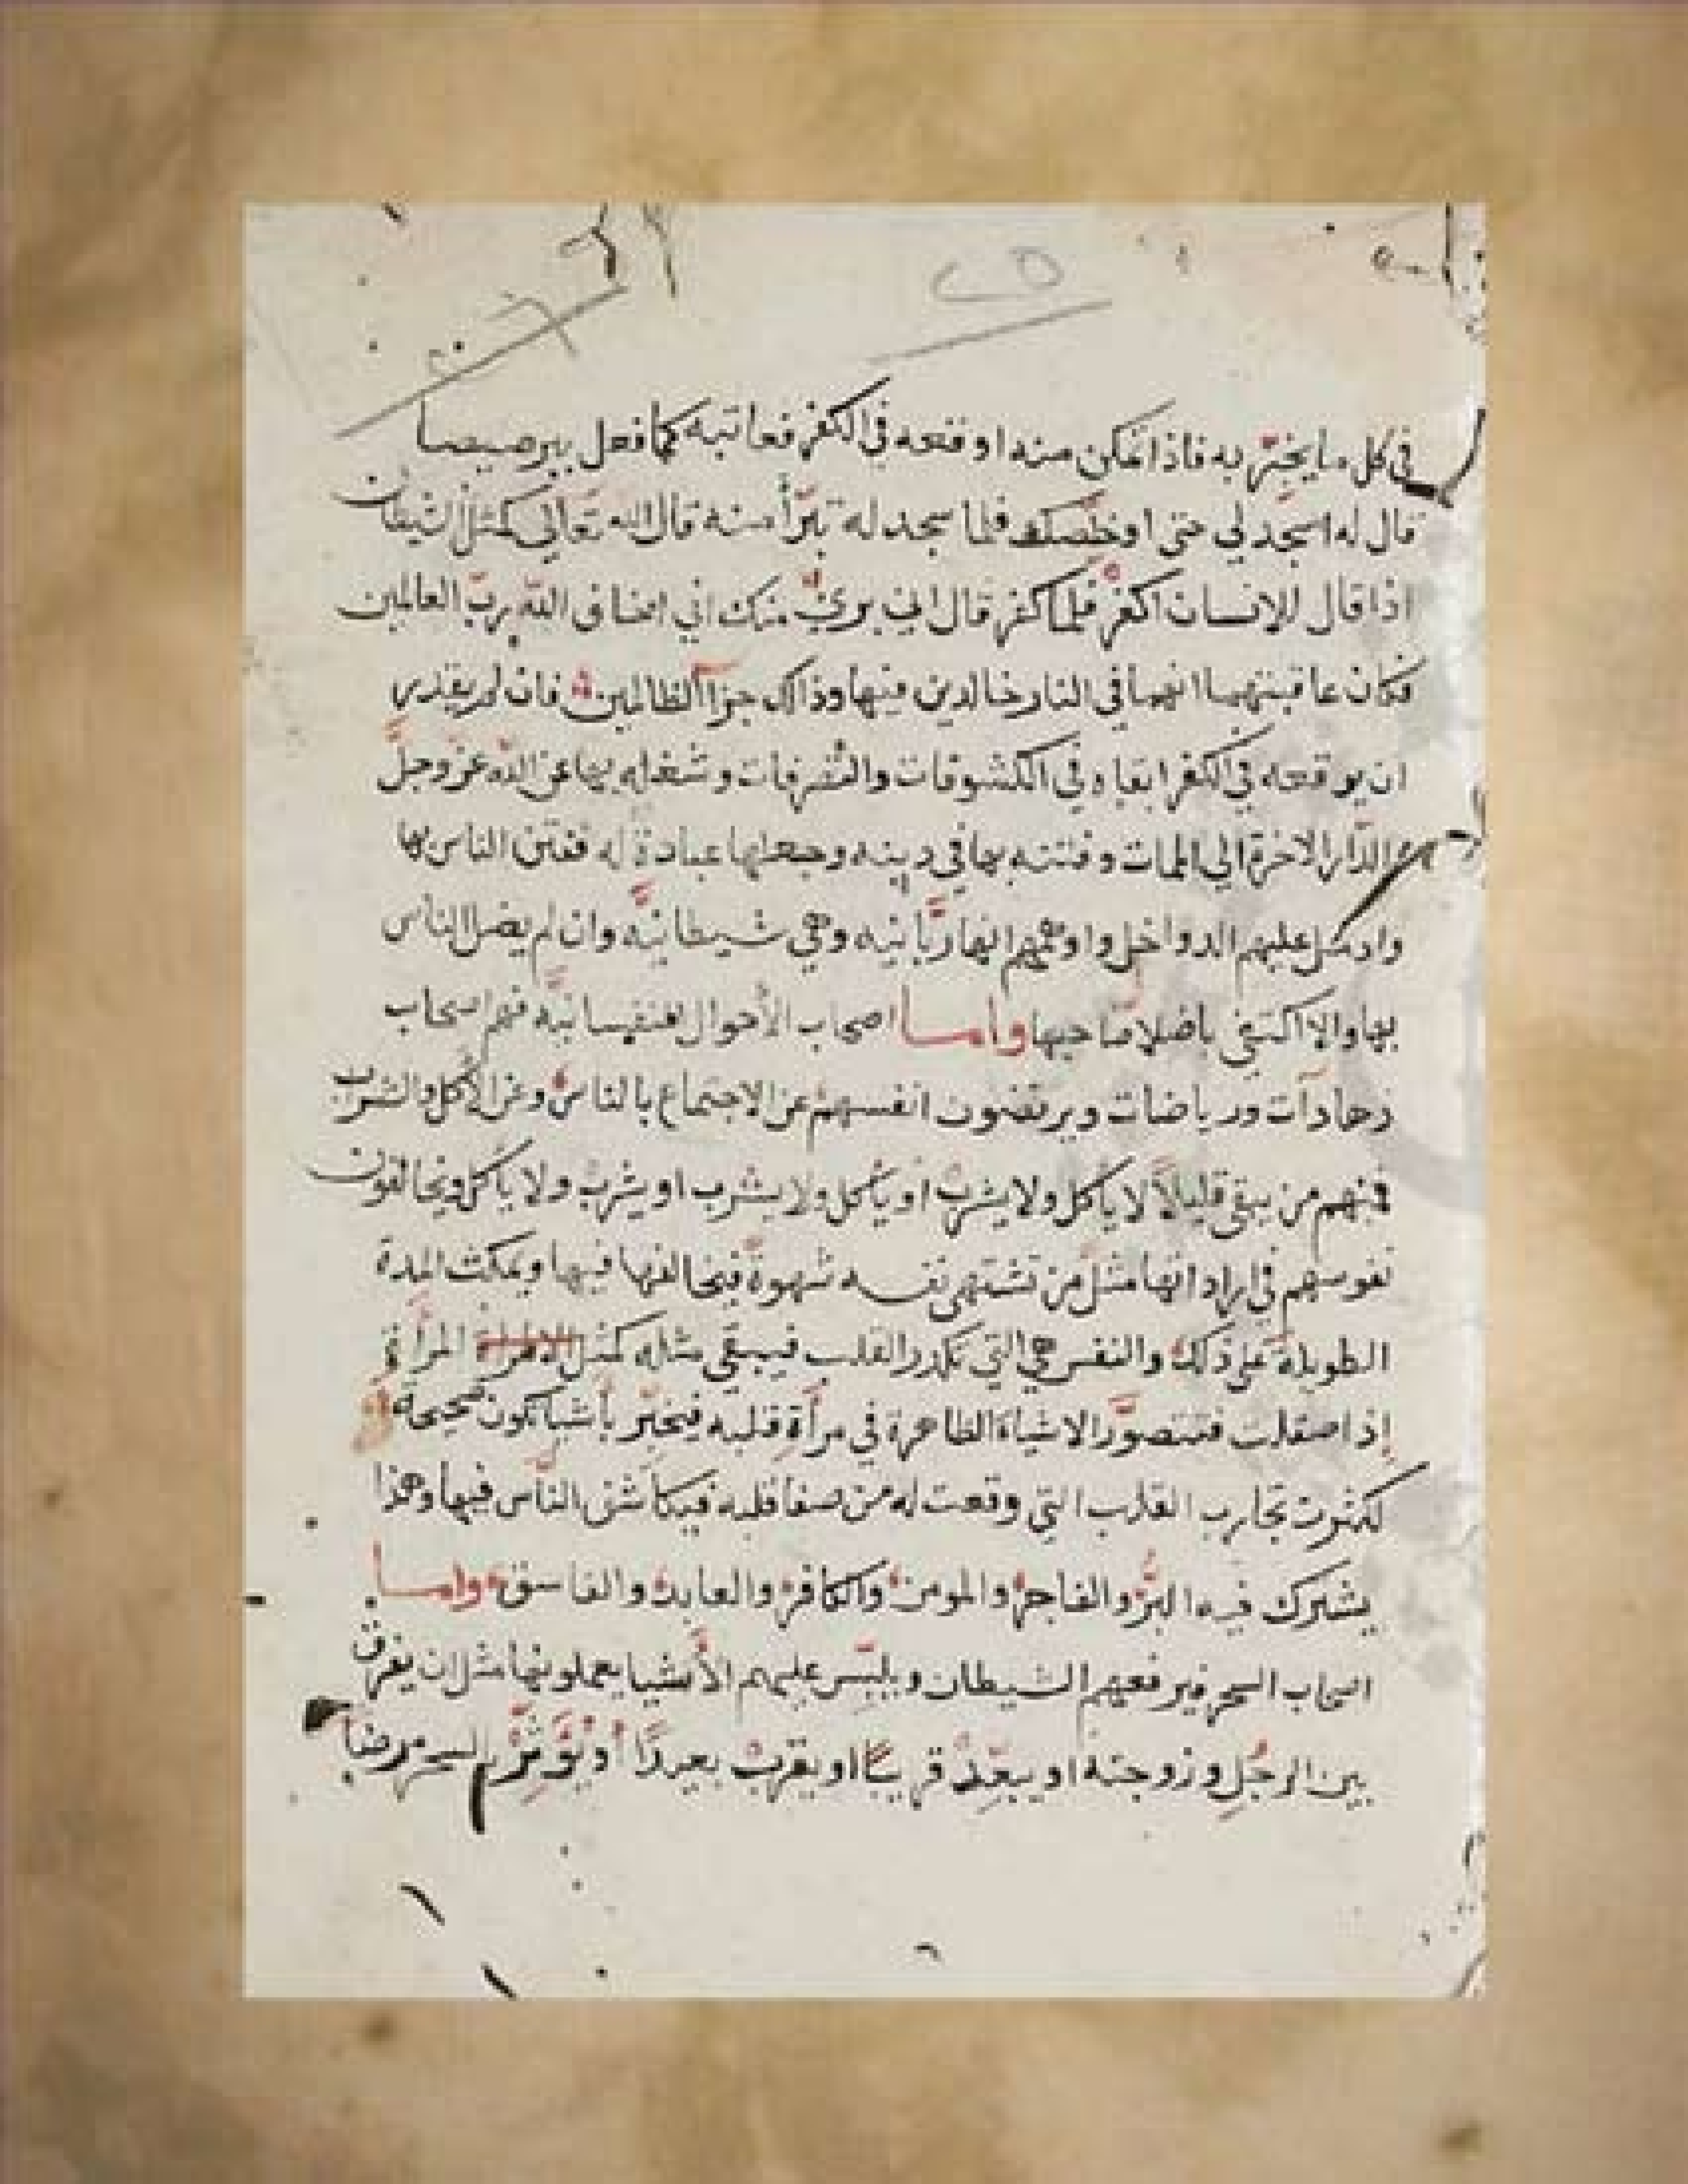 ٢٥
في كل ما يخبر به فاذا تمكن منه اوقعه في الكفر فعاتبه كما فعل ببرصيصا
قال له اسجد لي حتى اوخلصك فلما سجد له تبرأ منه قال الله تعالى كمثل الشيطان
اذا قال للانسان اكفر فلما كفر قال اني بريء منك اني اخاف الله رب العالمين
فكان عاقبتهما انهما في النار خالدين فيها وذالك جزآ الظالمين فان لم يقدر
ان يوقعه في الكفر ابقاه في الكشوفات والتصرفات وشغله بها عن الله عز وجل
والدار الاخرة الي الممات وفتنه بها في دينه وجعلها عبادة له ففتن الناس بها
وادخل عليهم الدواخل واوهمهم انها ربانيه وهي شيطانيه وان لم يضل الناس
بها والا اكتفي باضلا صاحبها واما اصحاب الأحوال النفسانيه فهم اصحاب
زهادآت ورياضات ويرتضون انفسهم عن الاجتماع بالناس وعن الأكل والشرب
فمنهم من يبقى قليلاً لا يأكل ولا يشرب او يأكل ولا يشرب او يشرب ولا يأكل ويخالفون
نفوسهم في اراداتها مثل من تشتهي نفسه شهوة فيخالفها فيها ويمكث المدة
الطويلة على ذلك والنفس هي التي تكدر القلب فيبقي مثله كمثل المرأة
إذا صقلت فتتصور الاشياء الظاهرة في مرأة قلبه فيخبر بأشيا تكون صحيحة
لكثرت تجارب القلب التي وقعت له من صفا قلبه فيكاشف الناس فيها وهذا
يشترك فيه البر والفاجر والمومن والكافر والعابد والفاسق واما
اصحاب السحر فيرفعهم الشيطان ويلبس عليهم الأشيا يعملونها مثل ان يفرق
بين الرجل وزوجته او يبعد قريبًا او يقرب بعيدًا أو يؤثر السحر مرضًا